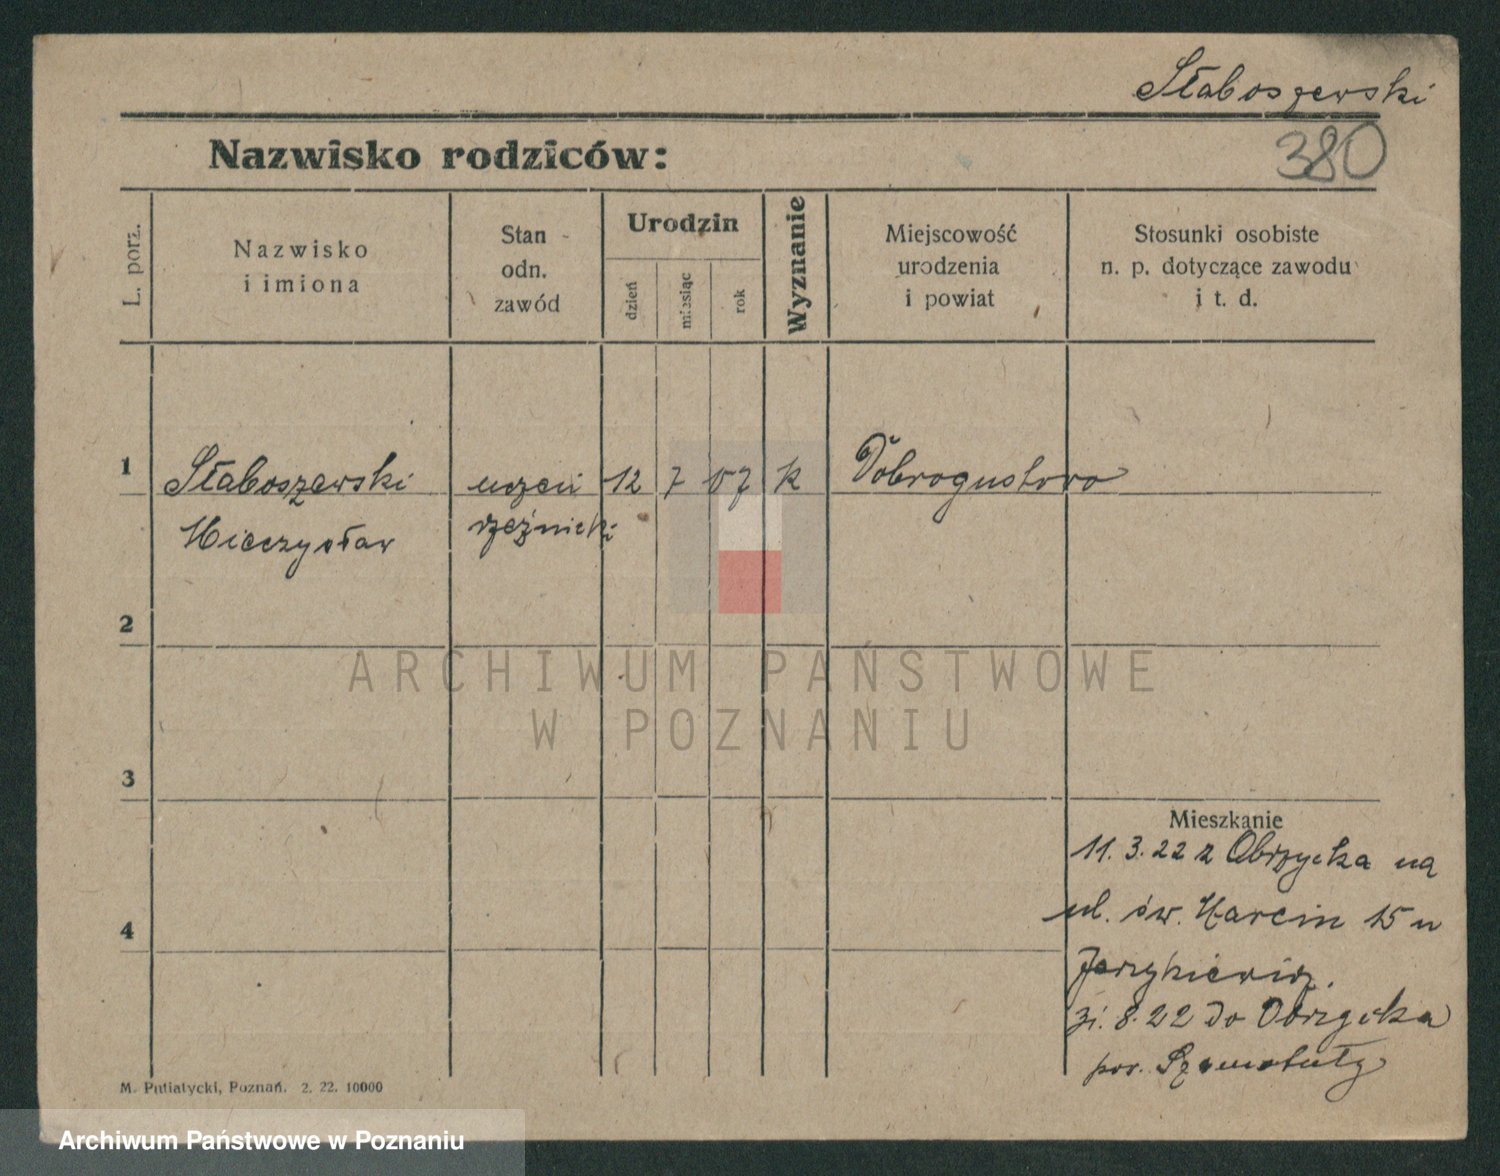 Słaboszewski
380
Nazwisko rodziców:
L. porz.
Nazwisko
i imiona
Stan
odn.
zawód
Urodzin
dzień
miesiąc
rok
Wyznanie
Miejscowość
urodzenia
i powiat
Stosunki osobiste
n. p. dotyczące zawodu
i t. d.
1
Słaboszewski uczeń 12 7 07 k Dobrogustowo
Mieczysław rzeźnicki
2
ARCHIWUM PAŃSTWOWE
W POZNANIU
3
Mieszkanie
11. 3. 22 z Obrzycka na
4
ul. św. Marcin 15 u
31. 8. 22 do Obrzycka
pow. Szamotuły
M. Putiatycki, Poznań. 2. 22. 10000
Archiwum Państwowe w Poznaniu